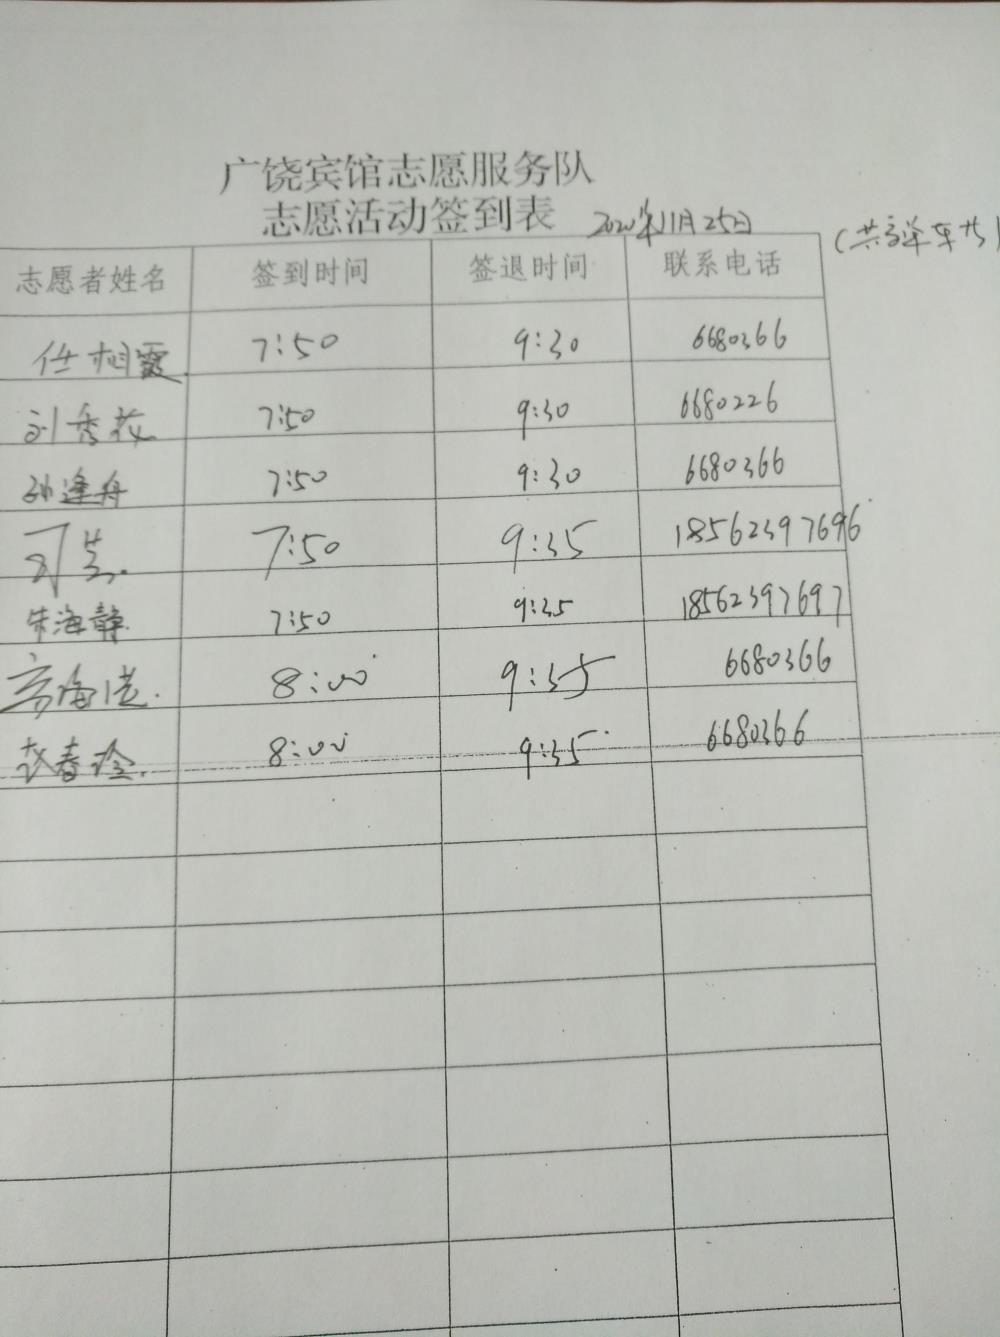 广饶宾馆志愿服务队
志愿活动签到表 2020年11月25日
(共享单车
志愿者姓名 签到时间 签退时间 联系电话
任相霞 7:50 9:30 6680366
刘秀花 7:50 9:30 6680226
孙逢舟 7:50 9:30 6680366
7:50 9:35 18562397696
朱海静 7:50 9:35 18562397697
高海滨 8:00 9:35 6680366
赵春玲 8:00 9:35 6680366